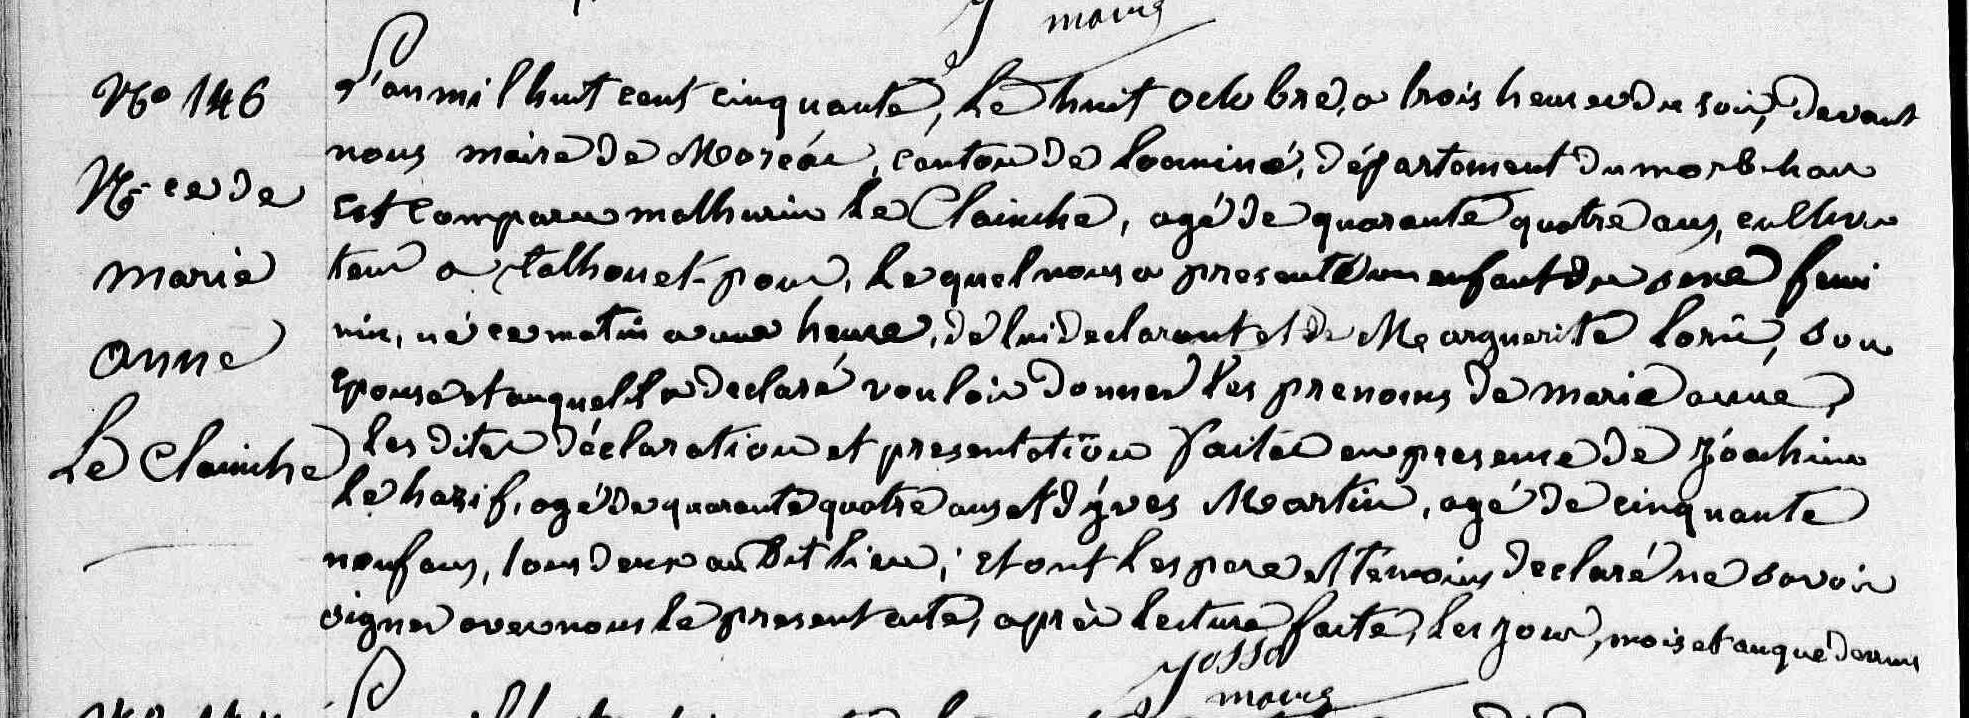 maire
No 146
Nce de
marie
anne
Le Clainche
L'an mil huit cent cinquante, Le huit octobre, a trois heures du soir, devant
nous maire de Moréac, canton de Locminé, département du morbihan
Est comparu mathurin Le Clainche, agé de quarante quatre ans, cultiva
teur a talhouet-pour, Lequel nous a presenté un enfant du sexe femi
nin, né ce matin a une heure, de lui declarant et de Marguerite Loric, son
Epouse et auquel il a declaré vouloir donner Les prenoms de marie anne,
Les dites déclaration et presentation faites en presence de Joachim
Le hazif, agé de quarante quatre ans et d'yves Martin, agé de cinquante
neuf ans, tous deux au dit Lieu; Et ont Les pere et temoins declaré ne savoir
signer avec nous Le present acte, après Lecture faite, Les jour, mois et an que dessus
Josso
maire